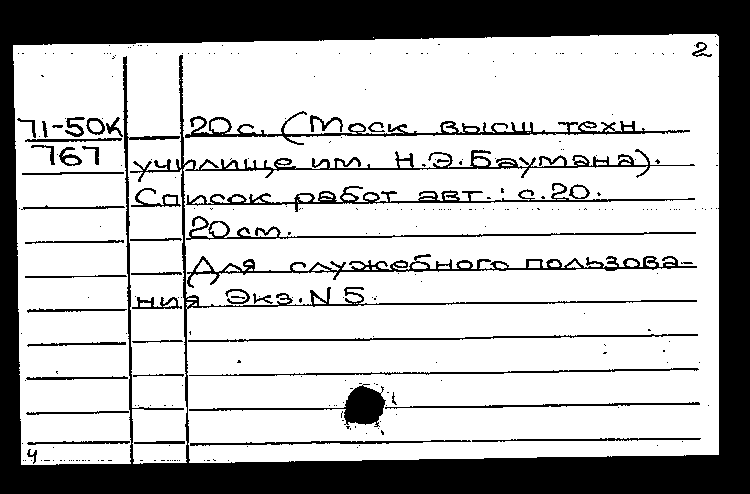 2
71-50К
767
20 с. (Моск. высш. техн.
училище им. Н.Э.Баумана).
Список работ авт.: с.20.
20 см.
Для служебного пользова-
ния. Экз. N 5.
ч